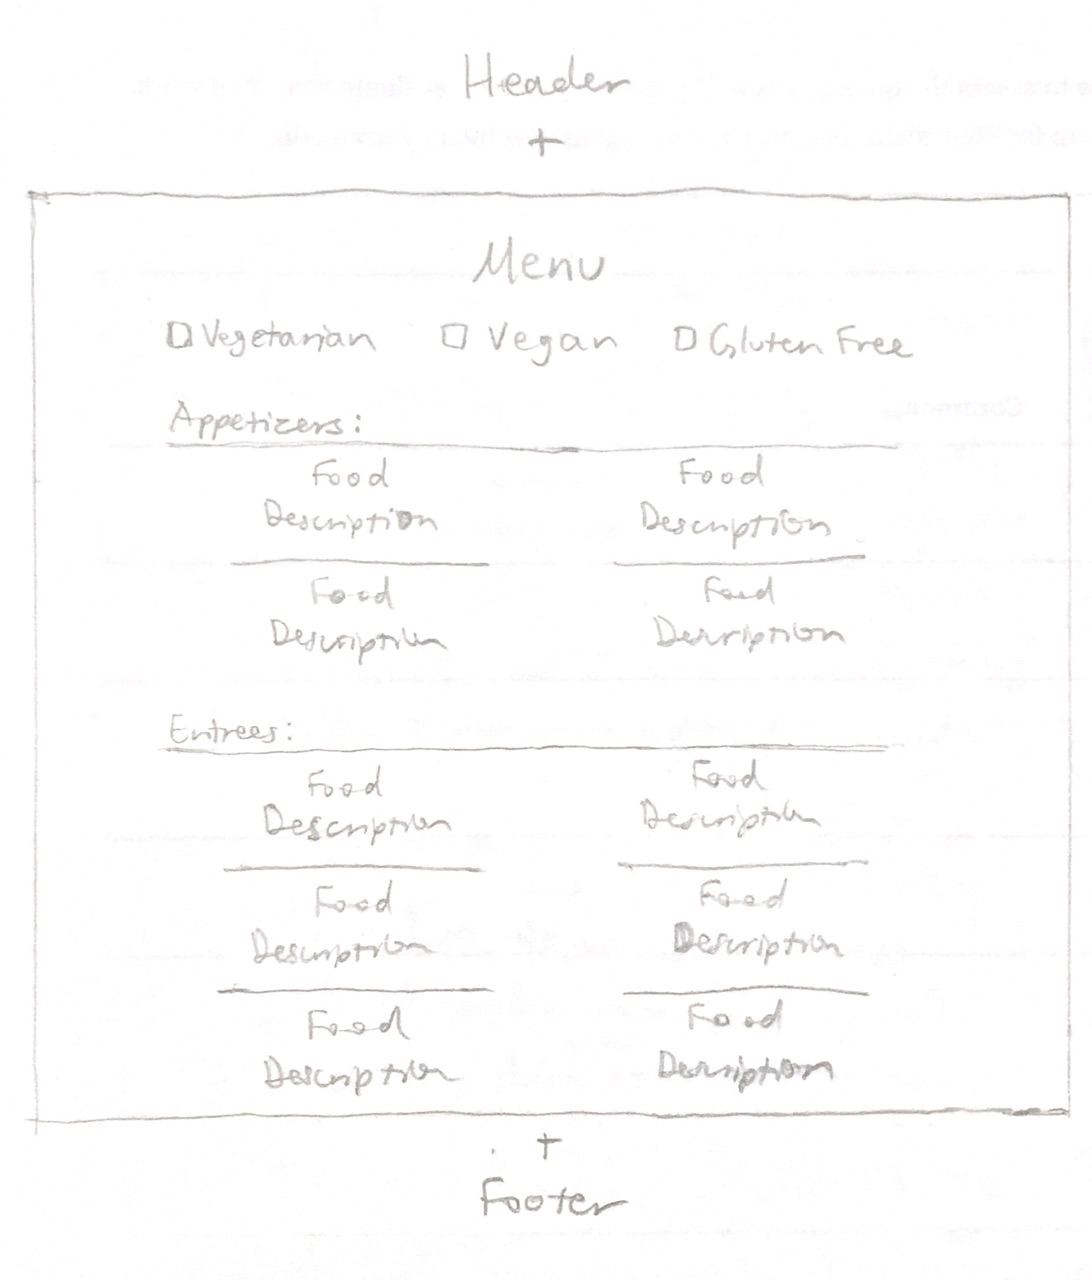 Header
+
Menu
Vegetarian Vegan Gluten Free
Appetizers:
Food Food
Description Description
Food Food
Description Description
Entrees:
Food Food
Description Description
Food Food
Description Description
Food Food
Description Description
+
Footer